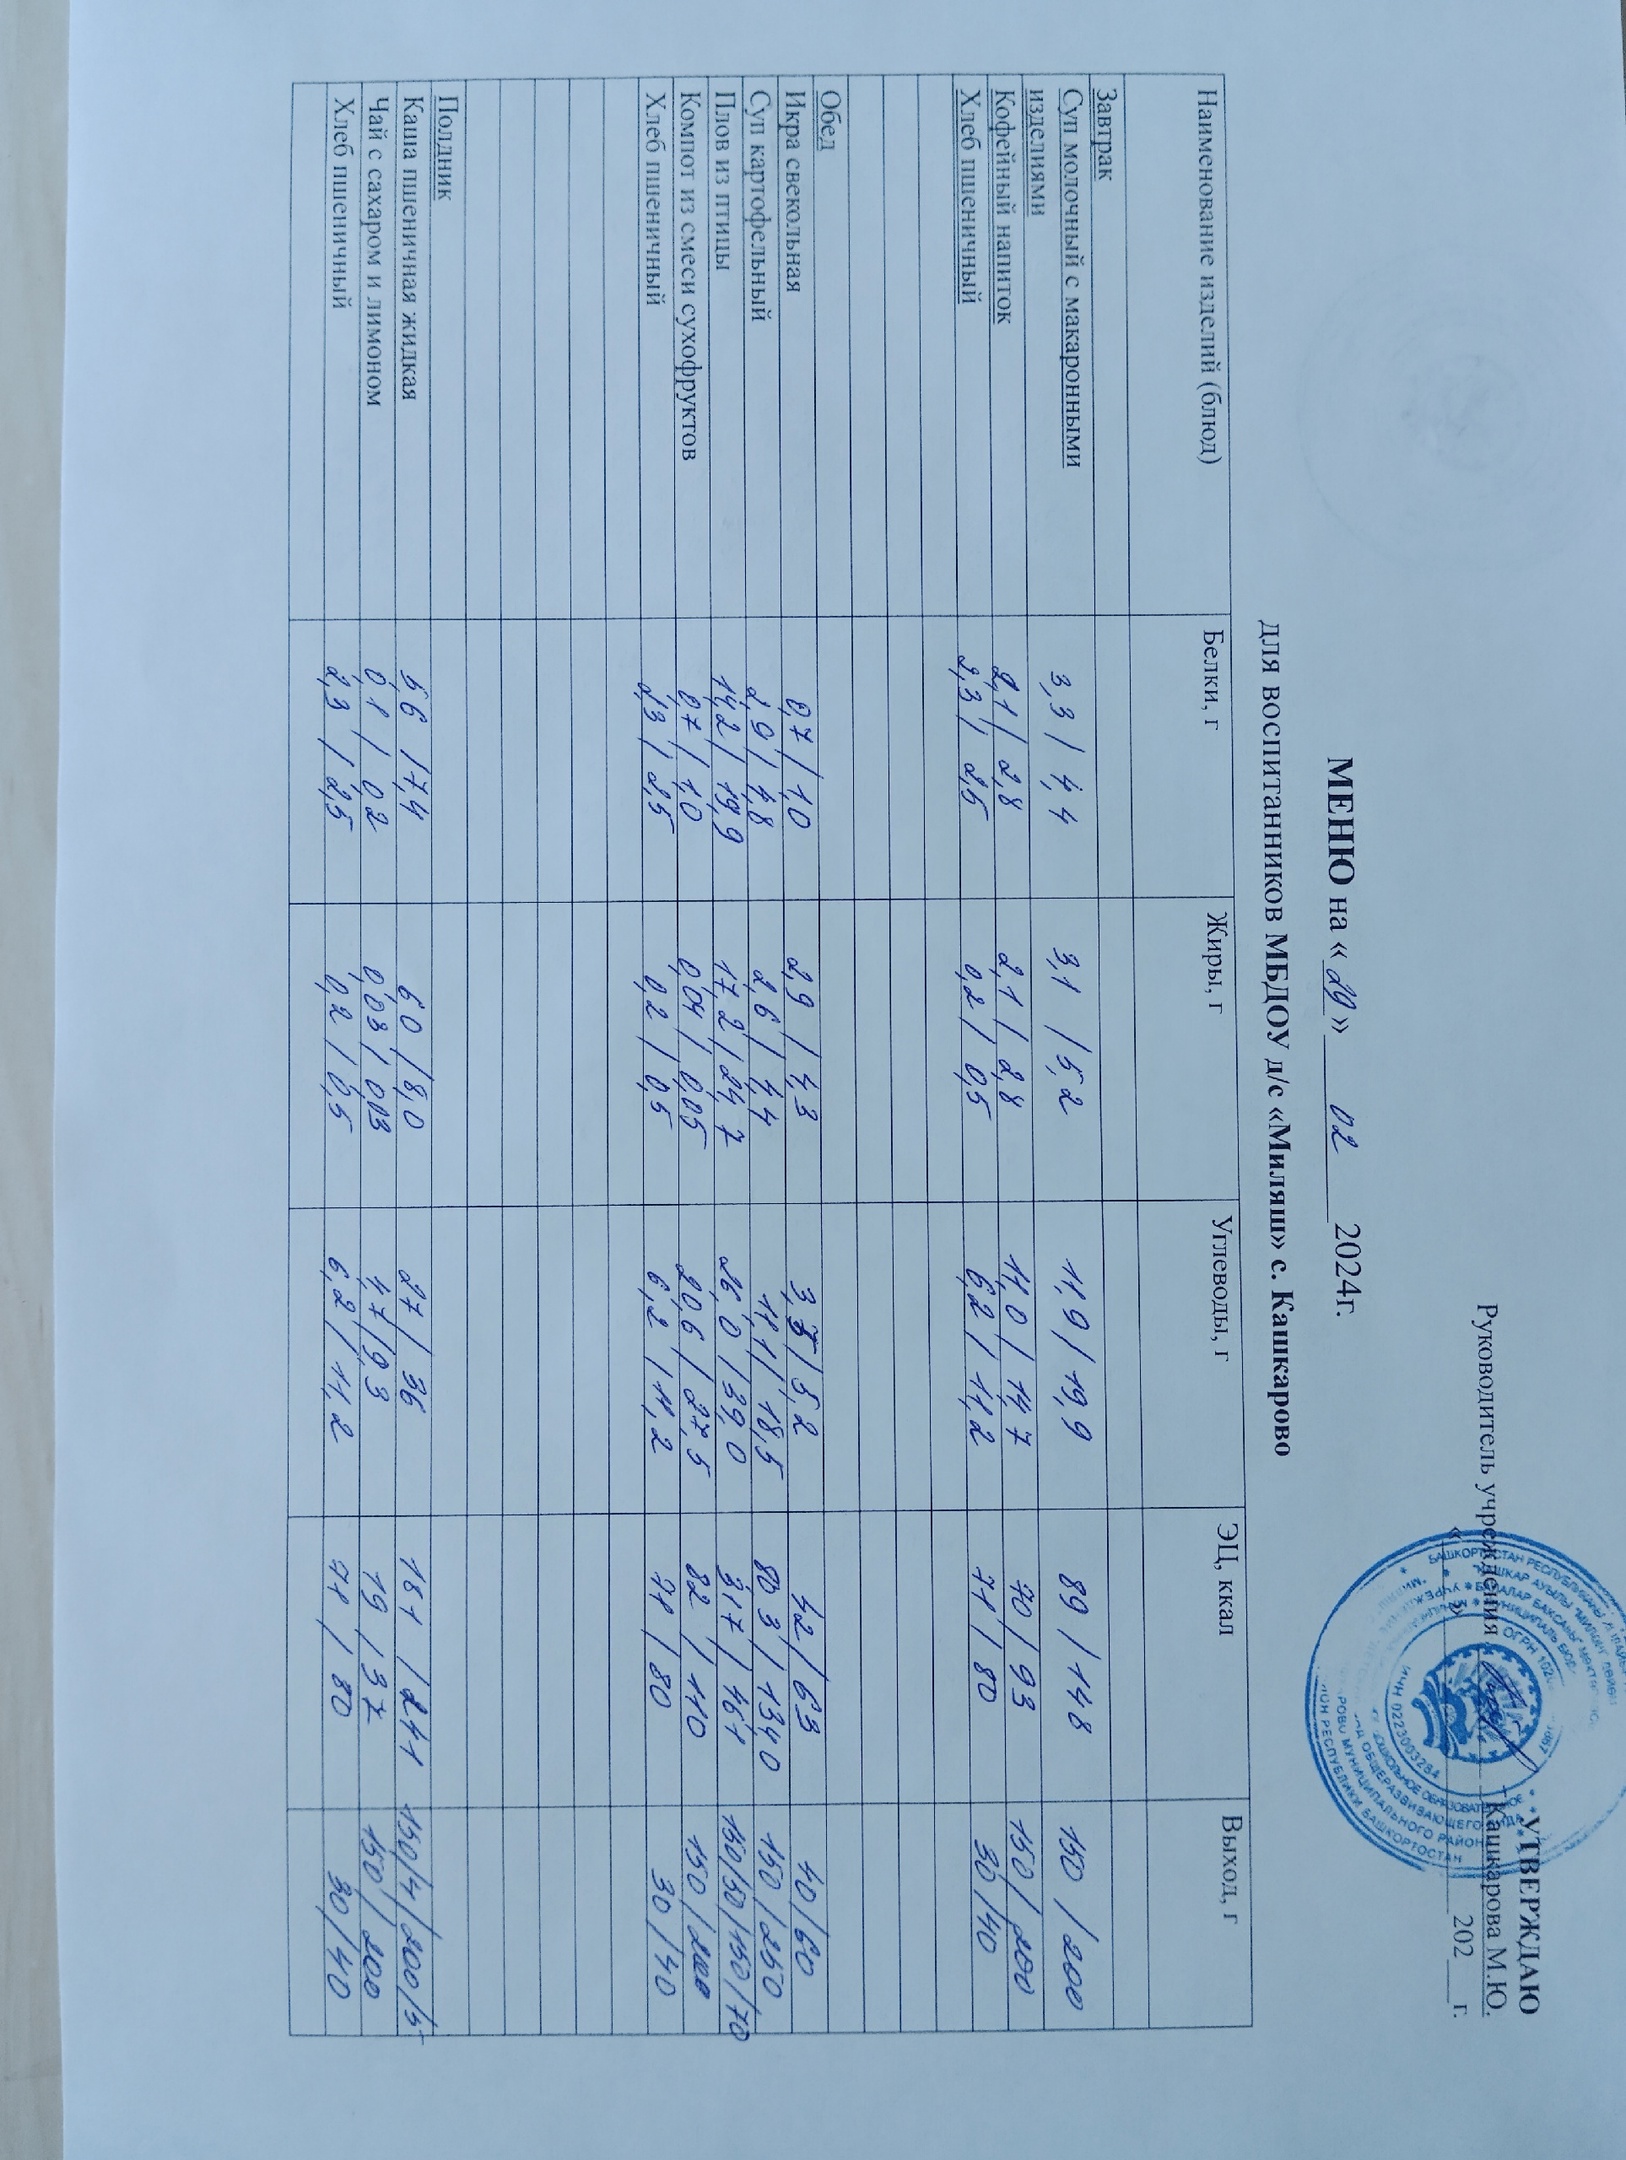 УТВЕРЖДАЮ
Руководитель учреждения Кашкарова М.Ю.
« » 202 г.
МЕНЮ на «29» 02 2024г.
для воспитанников МБДОУ д/с «Миляш» с. Кашкарово
Наименование изделий (блюд) Белки, г Жиры, г Углеводы, г ЭЦ, ккал Выход, г
Завтрак
Суп молочный с макаронными 3,3 / 4,4 3,1 / 5,2 11,9 / 19,9 89 / 148 150 / 200
изделиями
Кофейный напиток 2,1 / 2,8 2,1 / 2,8 11,0 / 14,7 70 / 93 150 / 200
Хлеб пшеничный 2,3 / 2,5 0,2 / 0,5 6,2 / 11,2 71 / 80 30 / 40
Обед
Икра свекольная 0,7 / 1,0 2,9 / 4,3 / 5,2 42 / 63 40 / 60
Суп картофельный 2,9 / 4,8 2,6 / 4,4 11,1 / 18,5 80,3 / 134,0 150 / 250
Плов из птицы 14,2 / 19,9 17,2 / 24,7 26,0 / 39,0 317 / 461 150/50/150/70
Компот из смеси сухофруктов 0,7 / 1,0 0,04 / 0,05 20,6 / 27,5 82 / 110 150 / 200
Хлеб пшеничный 2,3 / 2,5 0,2 / 0,5 6,2 / 11,2 71 / 80 30 / 40
Полдник
Каша пшеничная жидкая 5,6 / 7,4 6,0 / 8,0 27 / 36 181 / 241 150/4/200/5
Чай с сахаром и лимоном 0,1 / 0,2 0,03 / 0,03 4,7 / 9,3 19 / 37 150 / 200
Хлеб пшеничный 2,3 / 2,5 0,2 / 0,5 6,2 / 11,2 71 / 80 30 / 40
ИНН 0223003284